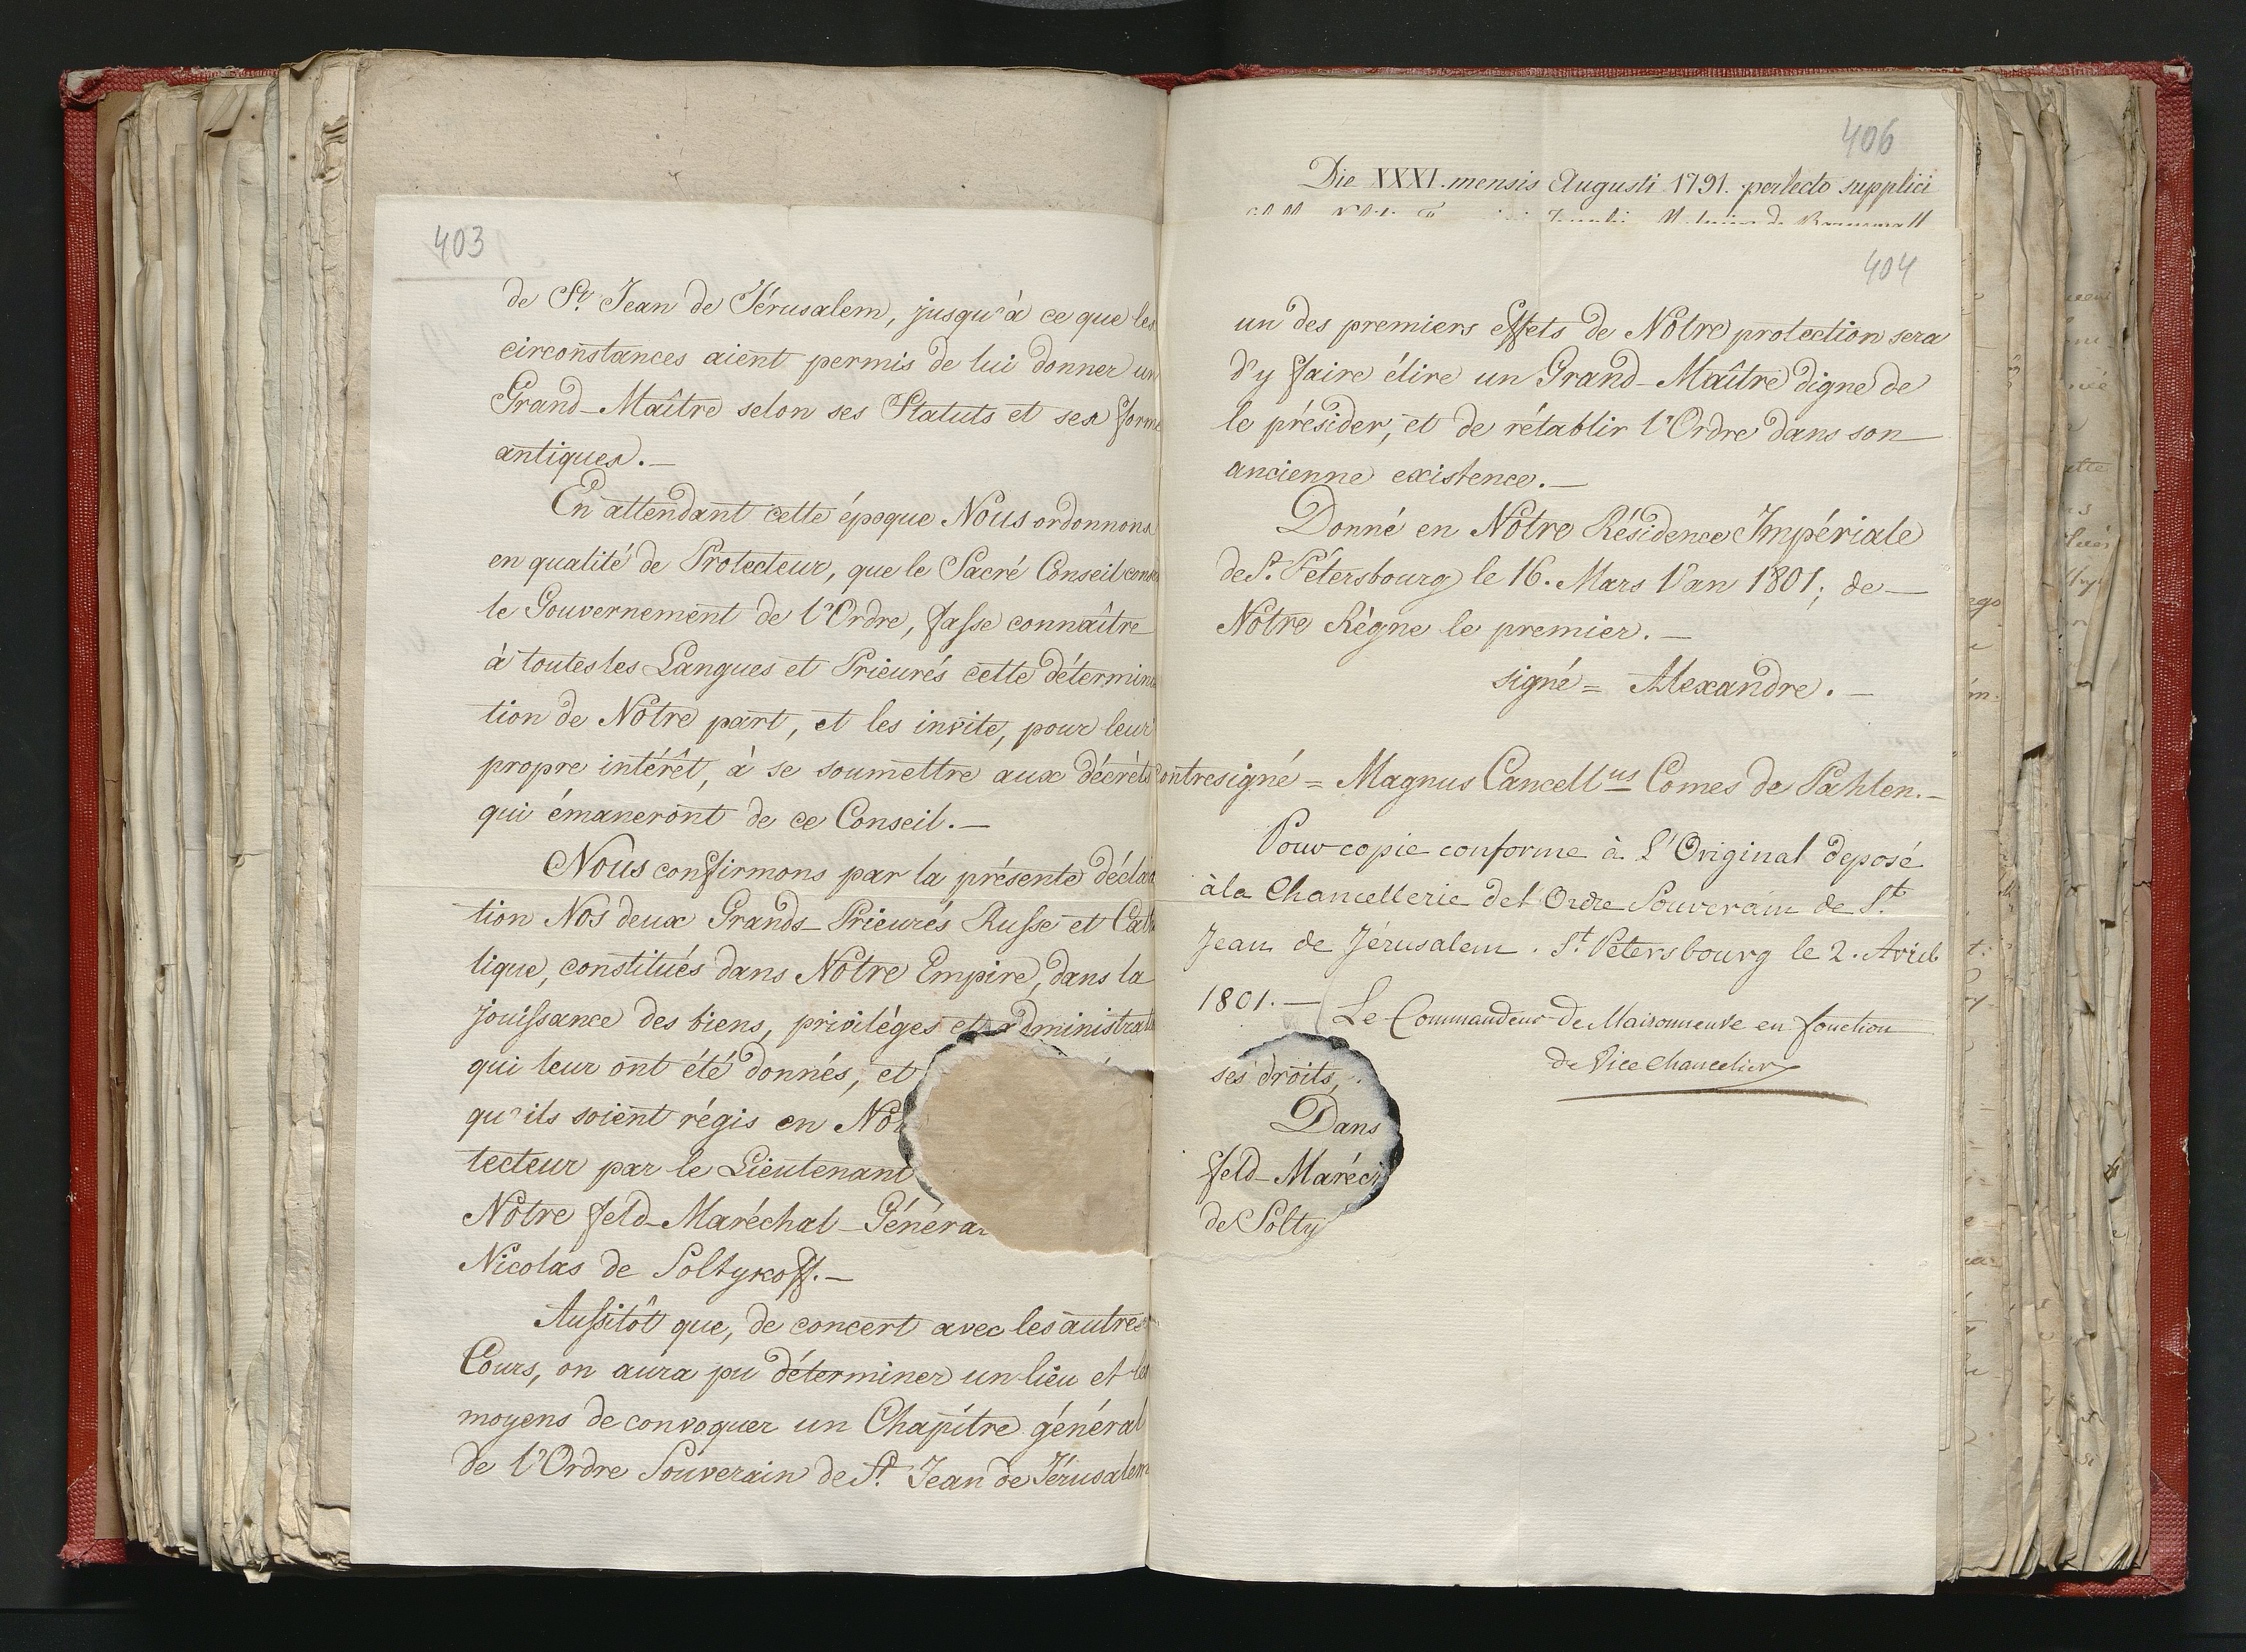 403
de St. Jean de Jérusalem, jusqu'à ce que les
circonstances aient permis de lui donner un
Grand-Maître selon ses Statuts et ses forme
antiques.—
En attendant cette époque Nous ordonnons
en qualité de Protecteur, que le Sacré Conseil
le Gouvernement de l'Ordre, fasse connaître
à toutes les Langues et Prieurés cette détermina
tion de Notre part, et les invite, pour leur
propre intérêt, à se soumettre aux décrets
qui émaneront de ce Conseil.—
Nous confirmons par la présente déclara
tion Nos deux Grands-Prieurés Russe et Cath
lique, constitués dans Notre Empire, dans la
jouissance des biens, priviléges et administrat
qui leur ont été donnés, et
qu'ils soient régis en No
tecteur par le Lieutenant
Notre feld-Maréchal-Généra
Nicolas de Soltykoff.—
Aussitôt que, de concert avec les autres
Cours, on aura pu déterminer un lieu et les
moyens de convoquer un Chapitre général
de l'Ordre Souverain de St. Jean de Jérusalem
406
Die XXXI. mensis Augusti 1791. perlecto supplici
404
un des premiers effets de Notre protection sera
d'y faire élire un Grand-Maître digne de
le présider, et de rétablir l'Ordre dans son
ancienne existence.—
Donné en Notre Résidence Impériale
de St. Pétersbourg le 16. Mars l'an 1801; de—
Notre Règne le premier.—
signé = Alexandre.—
ontresigné = Magnus Cancellus Comes de Pahlen.—
Pour copie conforme à L'Original deposé
à la Chancellerie de l'Ordre Souverain de St.
Jean de Jérusalem. St. Petersbourg le 2. Avril
1801.— Le Commandeur de Maisonneuve en fonction
de Vice Chancelier
ses droits,
Dans
feld-Maréch
de Solty